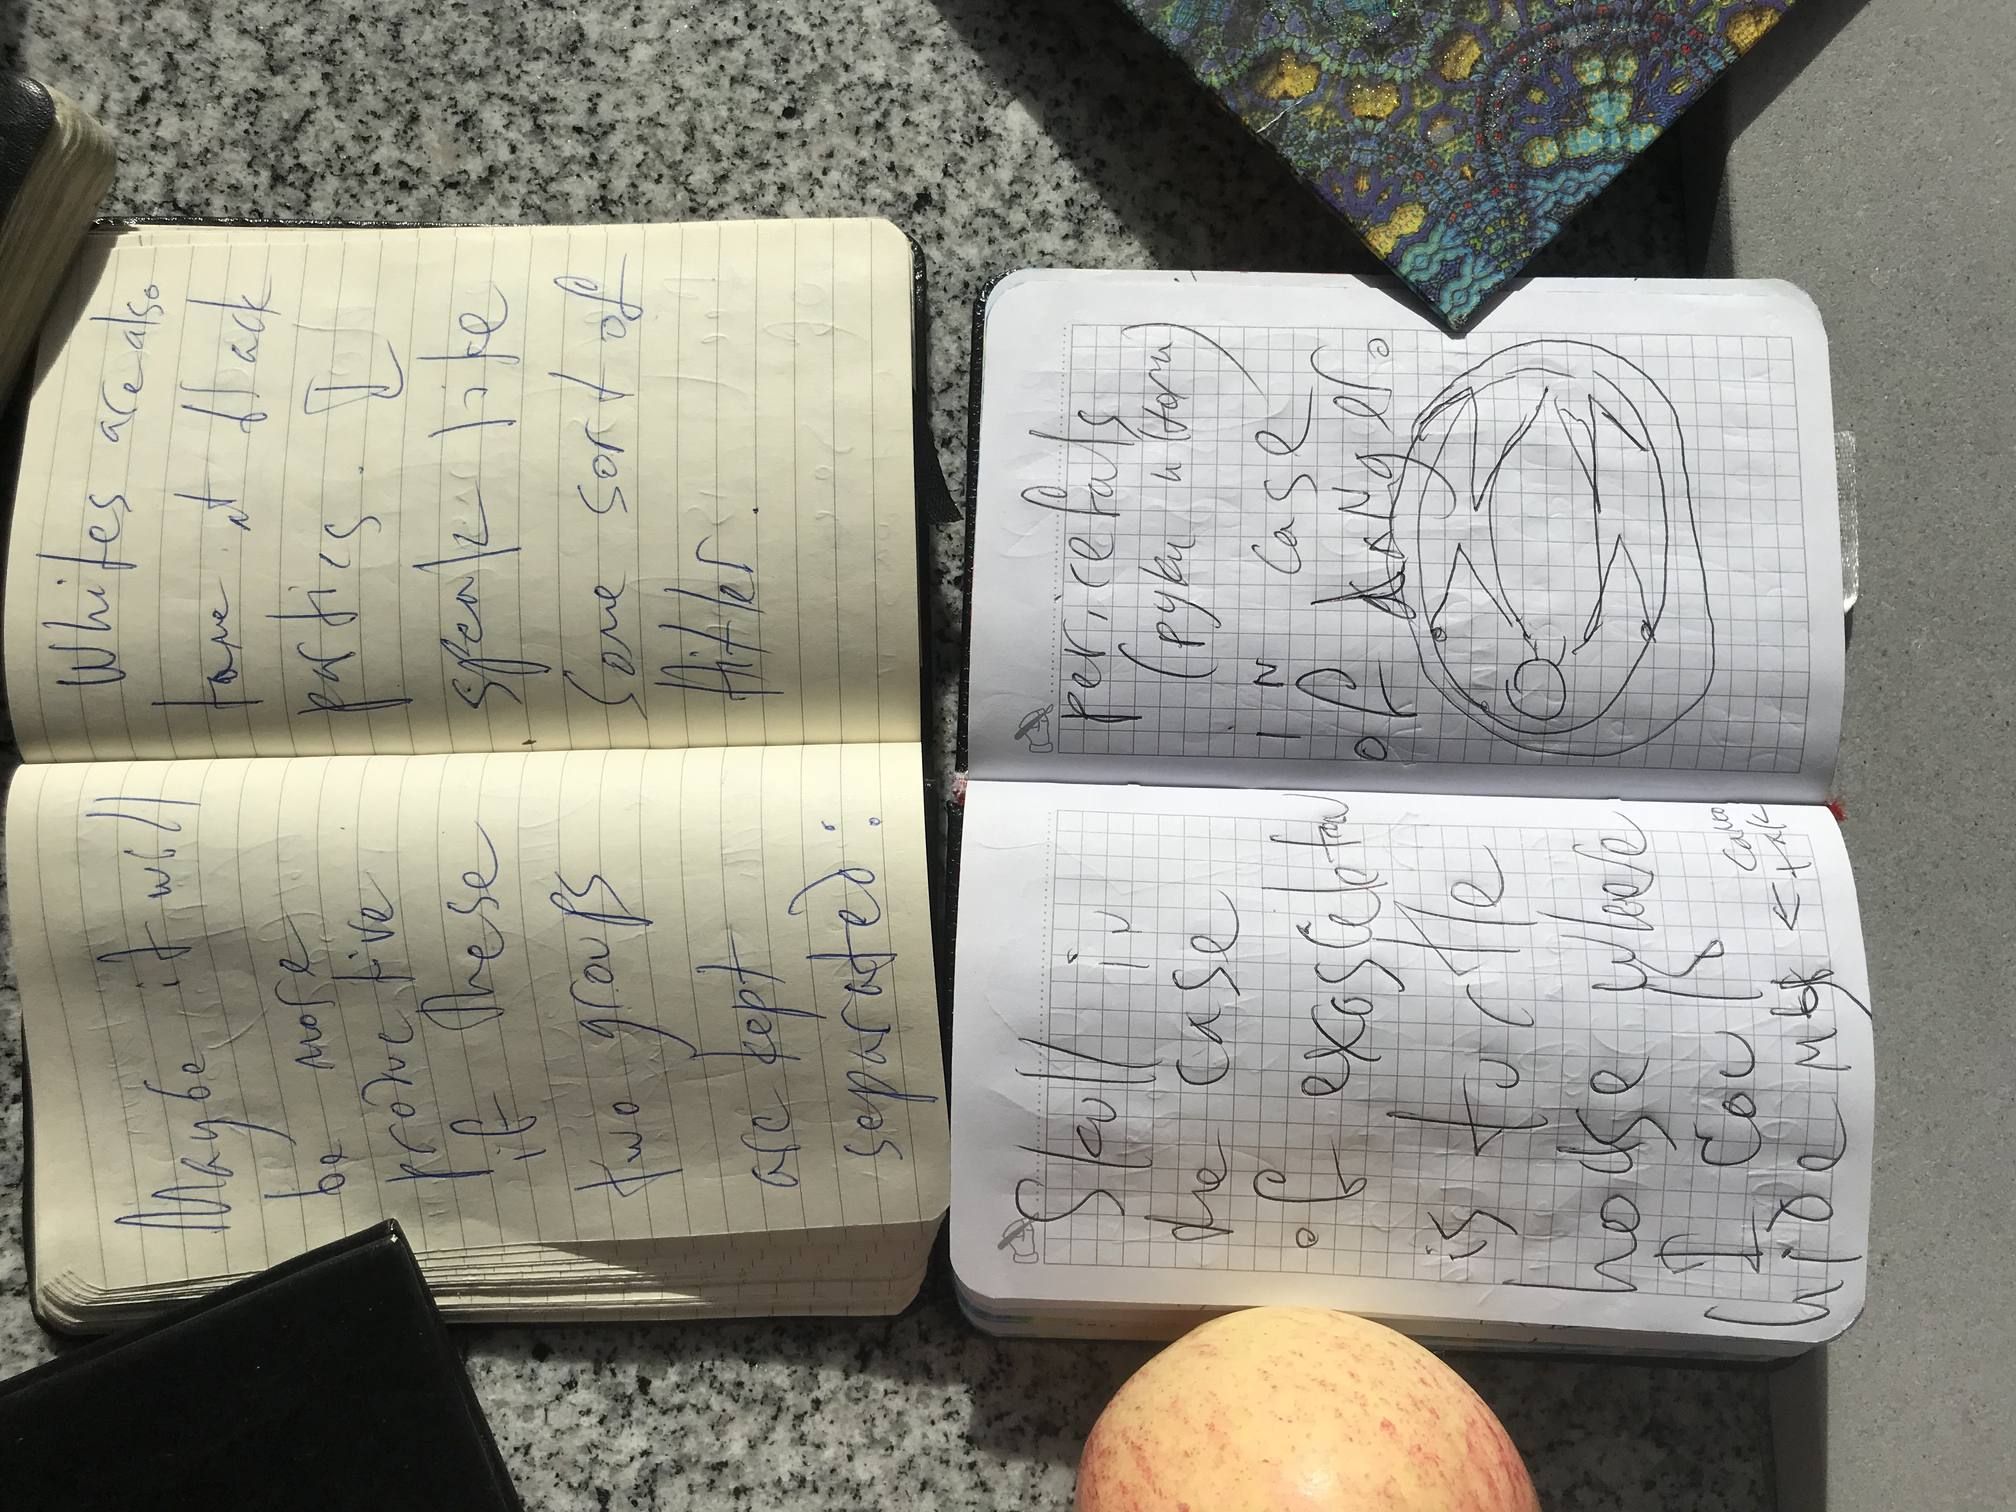 Maybe it will
be more
productive
if these
two groups
are kept
separated:
Whites are also
tone it black
parties. I
speak like
some sort of
Hitler
Skull in
the case
of exoscileton
is turtle
hodse where
it could
hide
pericetals
(руки и ноги)
in case
of